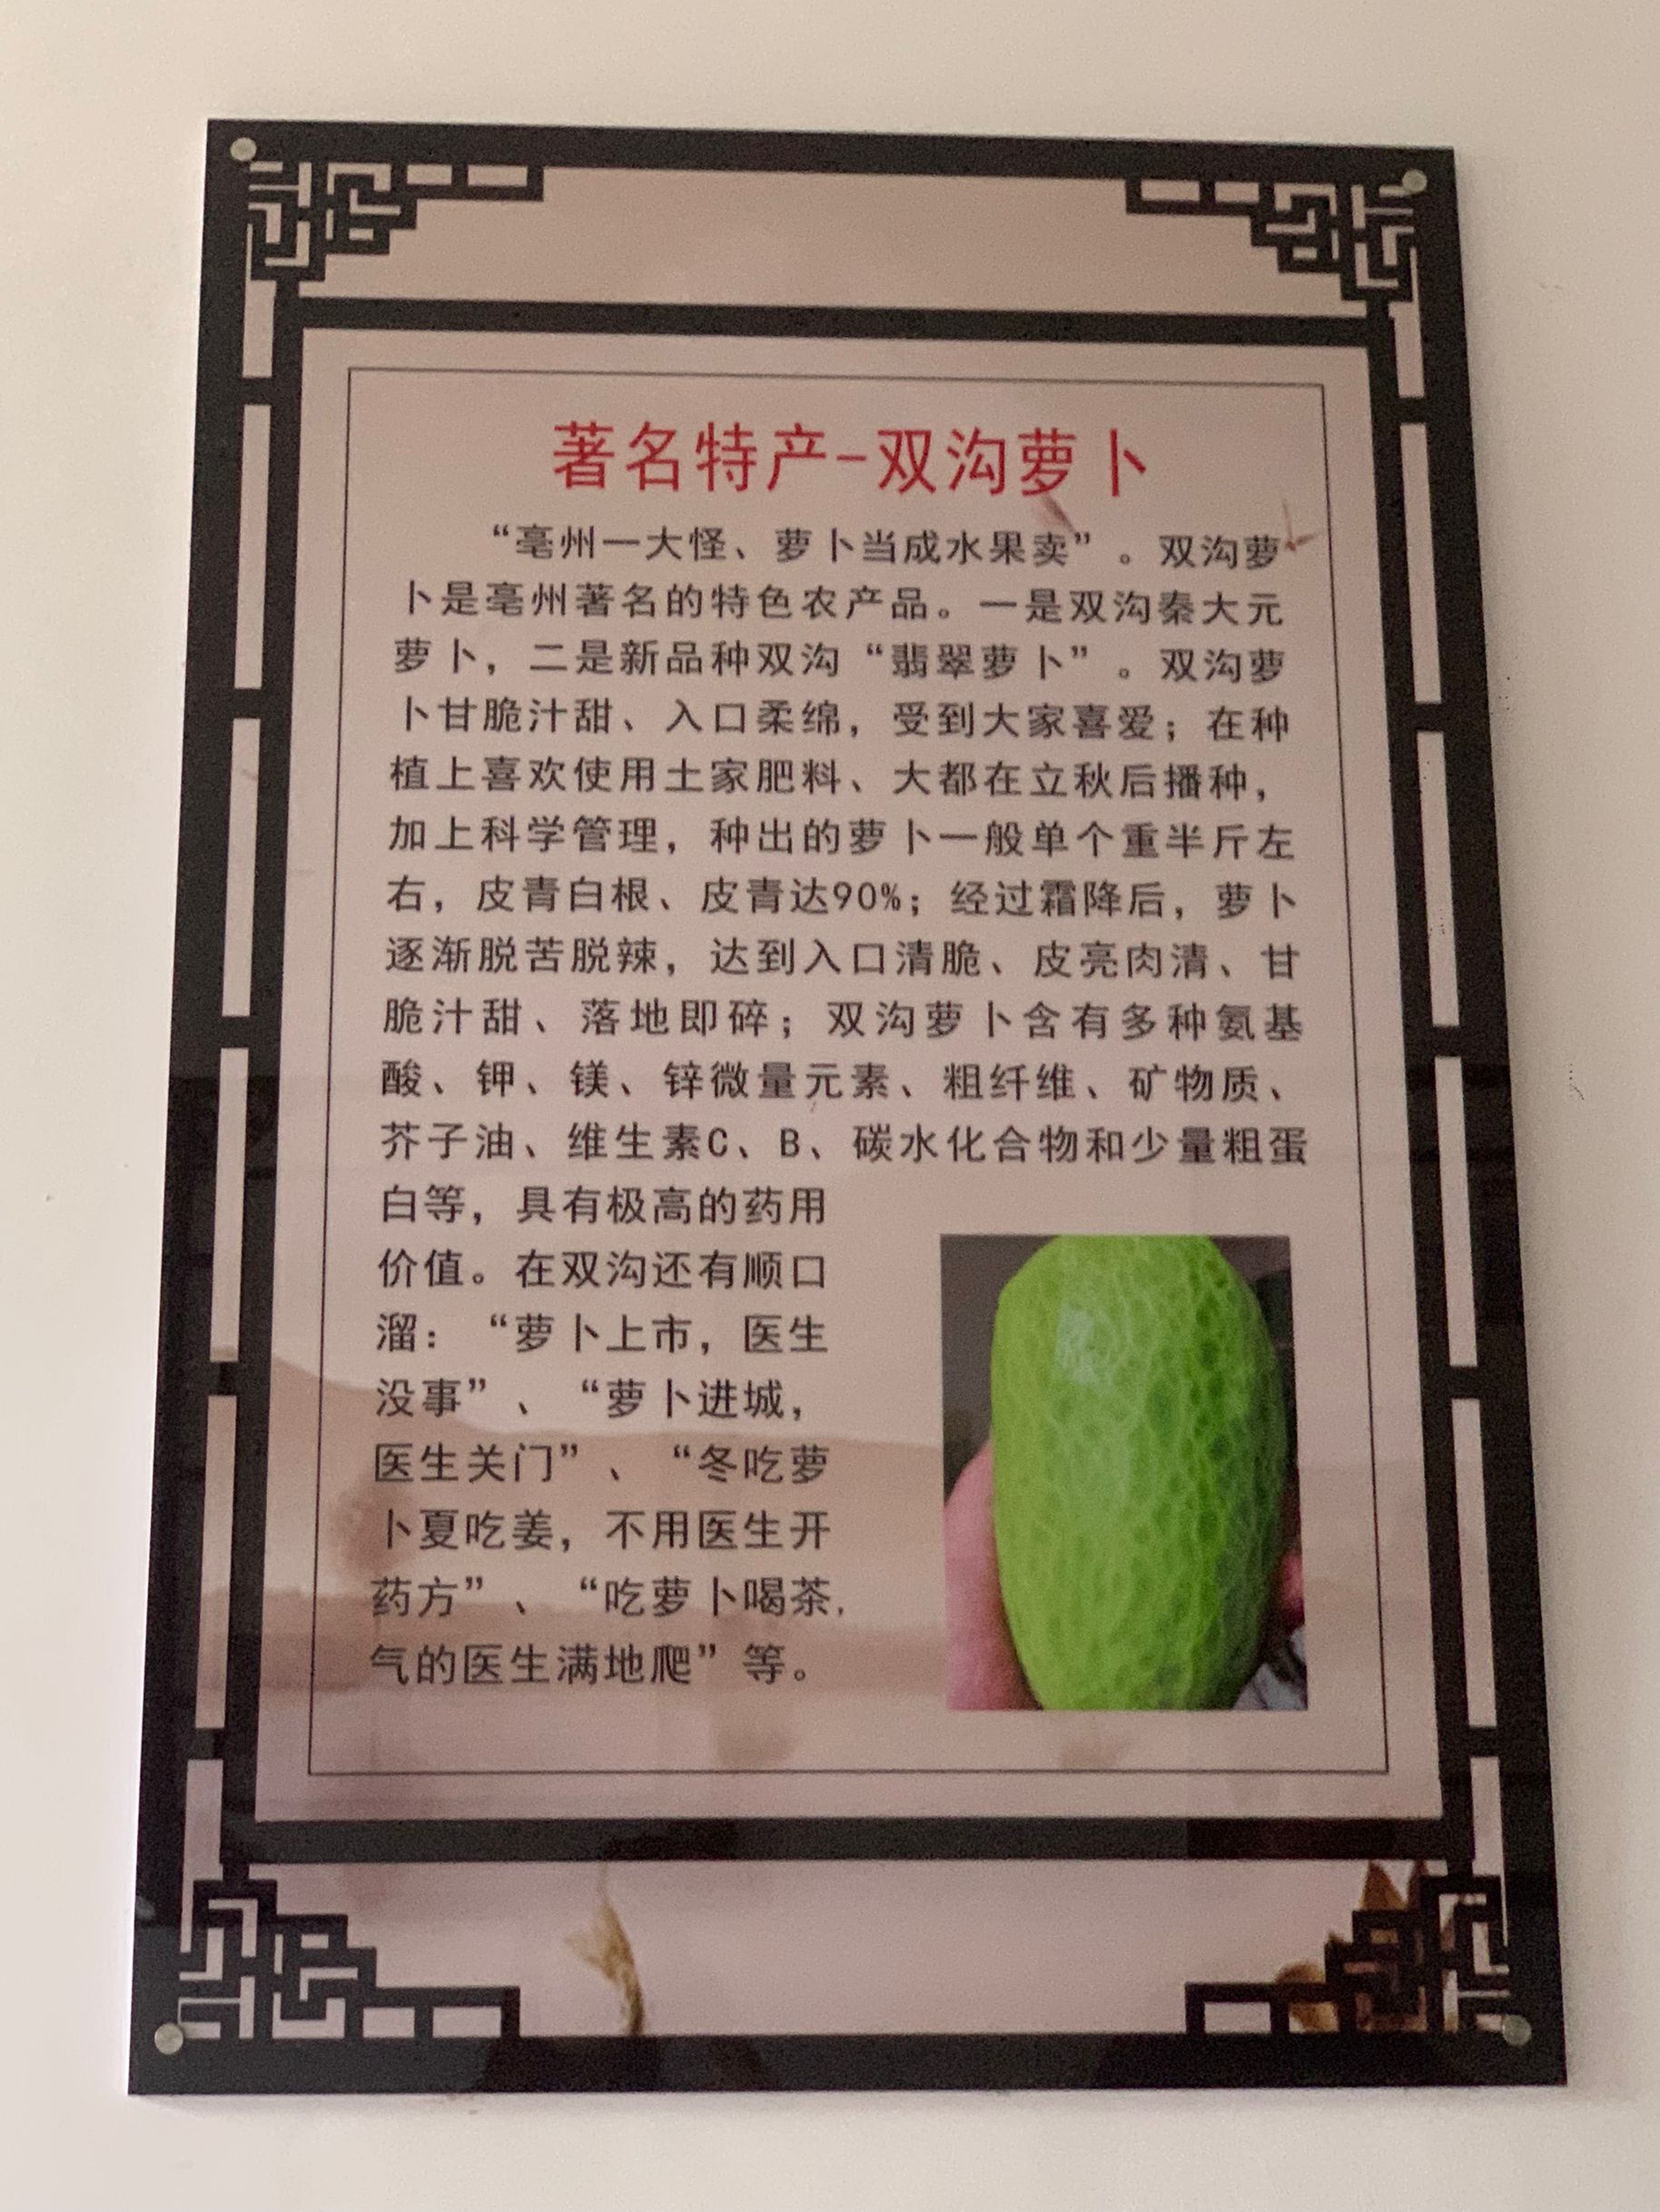 著名特产-双沟萝卜
“亳州一大怪、萝卜当成水果卖”。双沟萝
卜是亳州著名的特色农产品。一是双沟秦大元
萝卜，二是新品种双沟“翡翠萝卜”。双沟萝
卜甘脆汁甜、入口柔绵，受到大家喜爱；在种
植上喜欢使用土家肥料、大都在立秋后播种，
加上科学管理，种出的萝卜一般单个重半斤左
右，皮青白根、皮青达90%；经过霜降后，萝卜
逐渐脱苦脱辣，达到入口清脆、皮亮肉清、甘
脆汁甜、落地即碎；双沟萝卜含有多种氨基
酸、钾、镁、锌微量元素、粗纤维、矿物质、
芥子油、维生素C、B、碳水化合物和少量粗蛋
白等，具有极高的药用
价值。在双沟还有顺口
溜：“萝卜上市，医生
没事”、“萝卜进城，
医生关门”、“冬吃萝
卜夏吃姜，不用医生开
药方”、“吃萝卜喝茶，
气的医生满地爬”等。